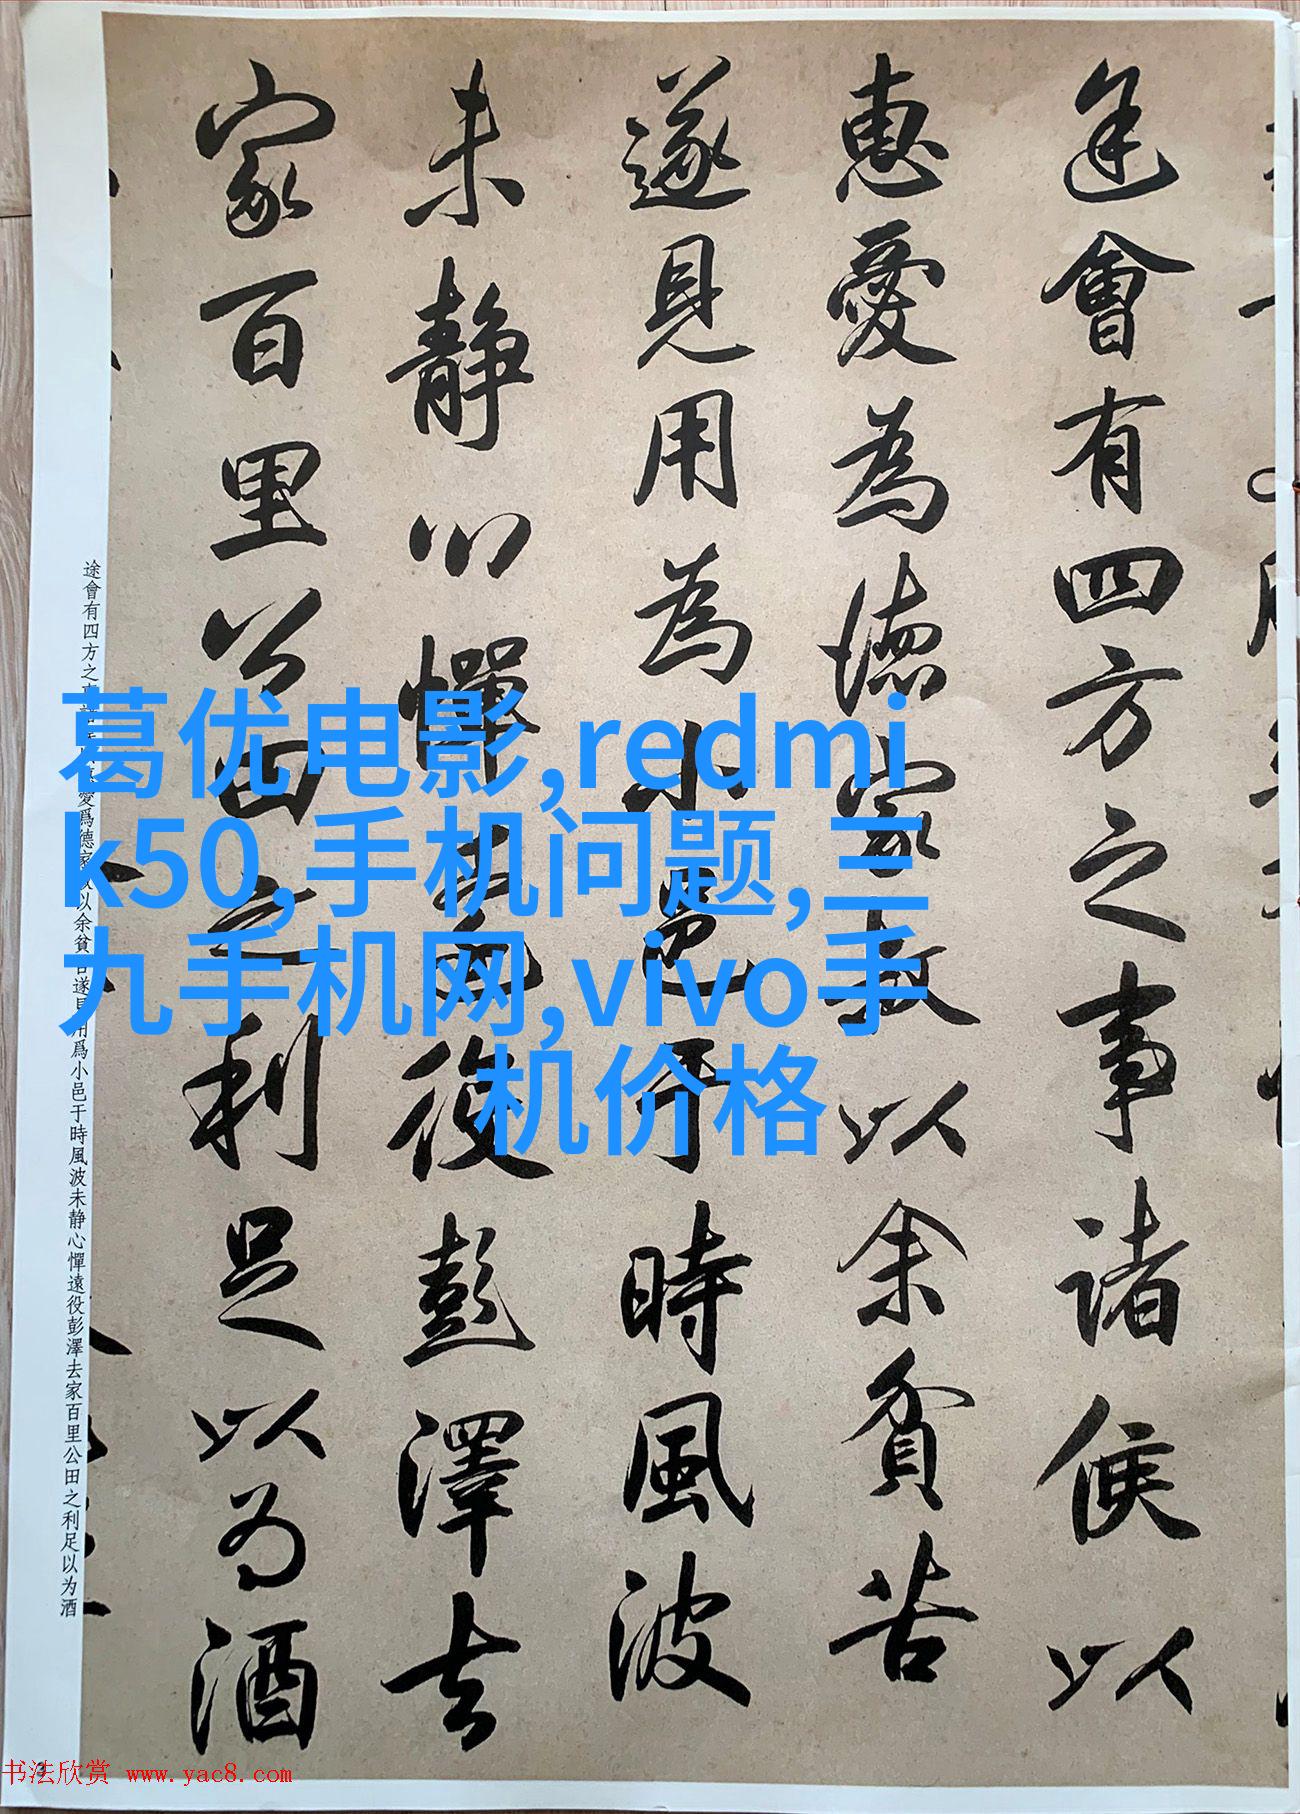 途會有四方之事諸侯以
惠愛為德家叔以余貧苦
遂見用為小邑于時風波
未靜心憚遠役彭澤去
家百里公田之利足以为酒
葛优电影,redmi
k50,手机问题,三
九手机网,vivo手
机价格
途會有四方之事諸侯以惠愛爲德家叔以余貧苦遂見用爲小邑于時風波未静心憚遠役彭澤去家百里公田之利足以为酒
3
书法欣赏 www.yac8.com